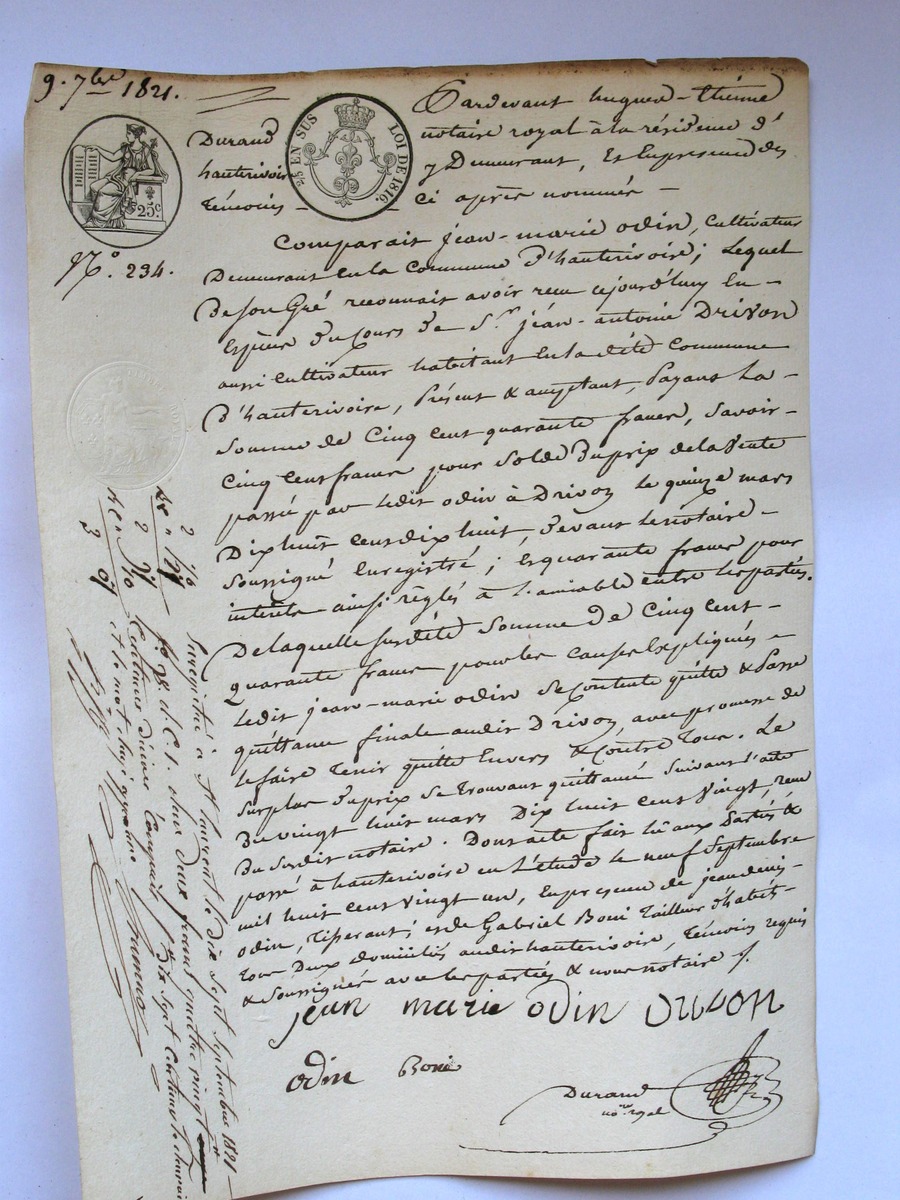 9. 7bre 1821.
Pardevant hugues-Etienne
Durand notaire royal à la résidence d'
hauterivoire y Demeurant, Et Enpresence des
témoins - ci après nommés -
2/5 EN SUS LOI DE 1816.
25c
N.° 234.
Comparait jean-marie odin, Cultivateur
Demeurant En la Commune D'hauterivoire; Lequel
De son Gré reconnait avoir recu cejourd'huy En -
Espèces Du Cours De Sr jean-antoine Drivon
aussi Cultivateur habitant En la dite Commune
D'hauterivoire, Présent & acceptant, Payant La -
Somme de Cinq Cent quarante francs, Savoir -
Cinq Cent francs pour Solde Du prix de la Vente
passé par Ledit odin à Drivon le quinze mars
Dix huit Cent dix huit, Devant Le notaire -
Soussigné Enregistré; Et quarante francs pour
intérêts ainsi règlés à L'amiable entre les parties.
De laquelle Susdite Somme De Cinq Cent -
quarante francs pour les Causes Expliquées -
Ledit jean-marie odin Se Contente quitte & Passe
quittance finale audit Drivon avec promesse de
le faire Tenir quitte Envers & Contre Tous. Le
Surplus Du prix Se trouvant quittancé Suivant L'acte
Du vingt huit mars Dix huit Cent Vingt, recu
Du Susdit notaire. Dont acte fait lû aux Parties &
passé à hauterivoire en L'étude le neuf Septembre
mil huit Cent vingt un, En presence de jean denis
odin, Tisserant; et de Gabriel Boni Tailleur d'habits -
Tous Deux domiciliés audit hauterivoire, Témoins requis
& Soussignés avec les parties & nous notaire
jean marie odin Drivon
odin Boni
Durand
nore royal
Enregistré à St Laurent le Dix Sept Septembre 1821 -
fo 78. d. C. 1. Deux francs quatre vingt
Centimes Dixième Cinquante Six
et le mot rayé